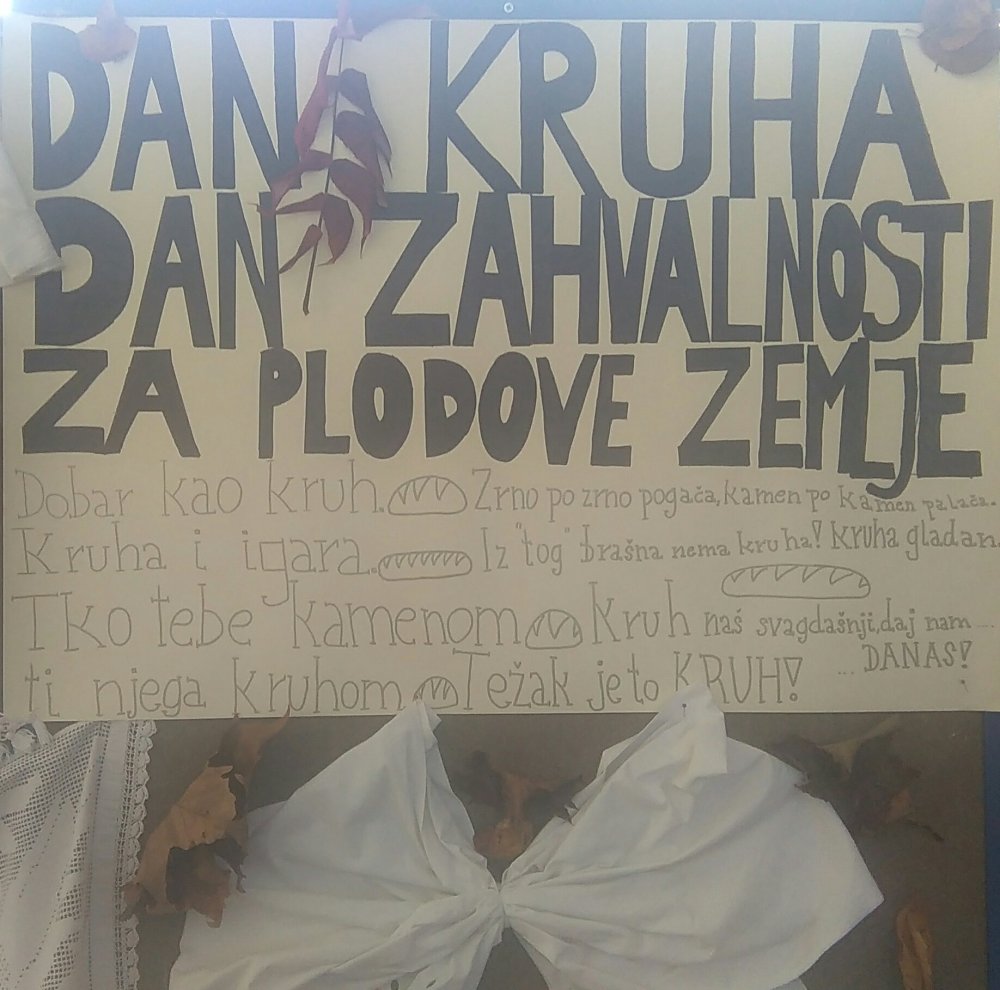 DAN KRUHA
DAN ZAHVALNOSTI
ZA PLODOVE ZEMLJE
Dobar kao kruh. Zrno po zrno pogača, kamen po kamen palača.
Kruha i igara. Iz "tog" brašna nema kruha! Kruha gladan.
Tko tebe kamenom Kruh naš svagdašnji, daj nam ...
ti njega kruhom Težak je to KRUH! ... DANAS!